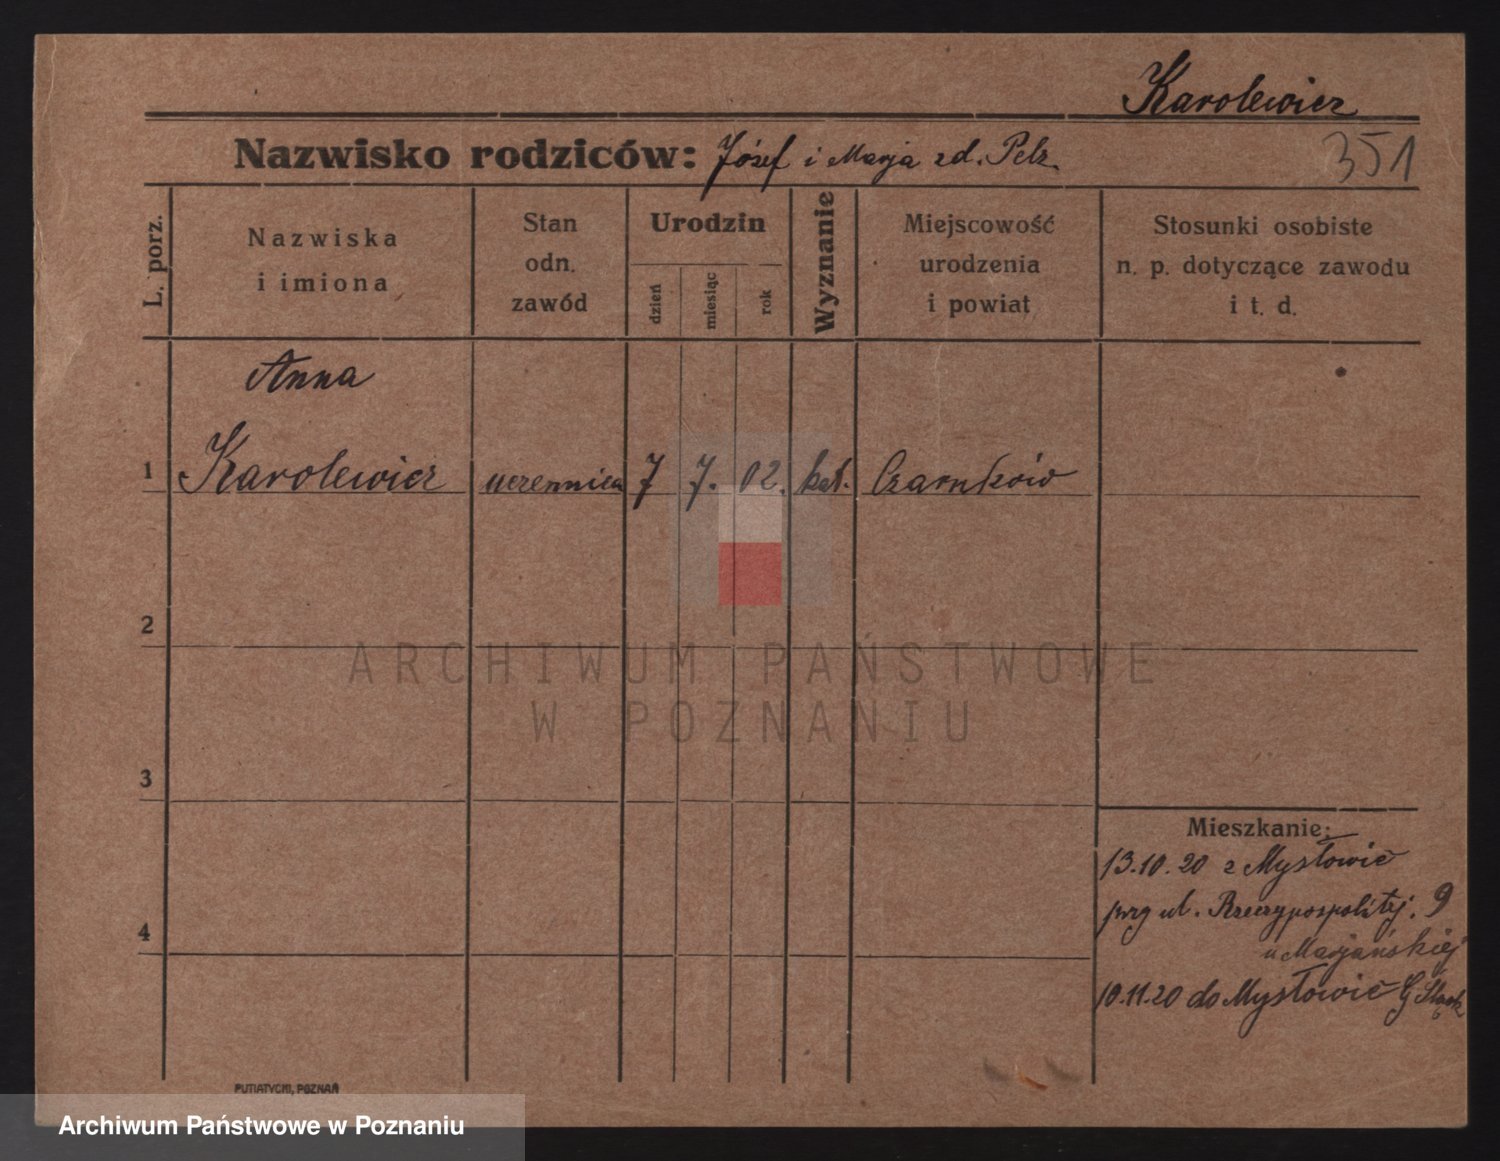 Karolewicz
351
Nazwisko rodziców: Józef i Marja zd. Pelz
L. porz.
Nazwiska
i imiona
Stan
odn.
zawód
Urodzin
dzień
miesiąc
rok
Wyznanie
Miejscowość
urodzenia
i powiat
Stosunki osobiste
n. p. dotyczące zawodu
i t. d.
Anna
1 Karolewicz uczennica 7 7. 02. kat. Czarnków
2
ARCHIWUM PAŃSTWOWE
W POZNANIU
3
Mieszkanie:
13.10.20 z Mysłowic
przy ul. Rzeczypospolitej. 9
u Marjańskiej
4
10.11.20 do Mysłowic G Śląsk
PUTIATYCKI, POZNAŃ
Archiwum Państwowe w Poznaniu